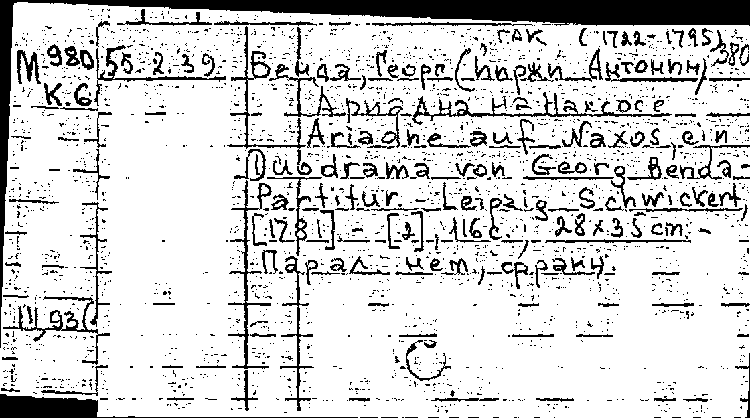 , ГАК (1722-1795)
М 980 55.2.39. Бенда, Георг (Пиржи Антонин) 380
К.6 Ариадна на Наксосе
Ariadne auf Naxos, ein
Duodrama von Georg Benda-
Partitur.- Leipzig: Schwickert,
[1781].- [2], 116 с.; 28x35 cm.-
Парал. нем., франц.
III, 93
С